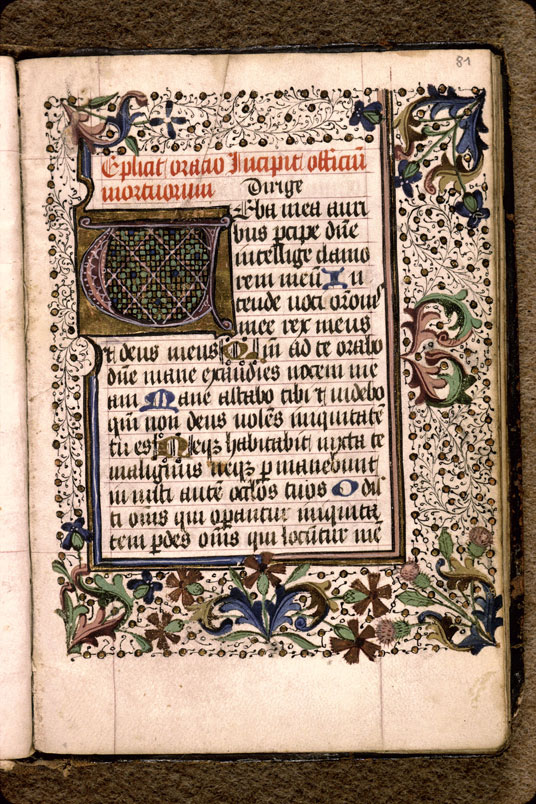 81
Eplicit oratio Incipit officiū
mortuorum Dirige
Verba mea auri
bus ꝑcipe dn̄e
intellige clamo
rem meū In
tende voci oronis
mee rex meus
et deus meus Qm̄ ad te orabo
dn̄e mane exaudies vocem me
am Mane astabo tibi et videbo
qm̄ non deus volēs iniquitatē
tu es Neqꝫ habitabit iuxta te
malignus neqꝫ ꝑmanebunt
iniusti ante oc̄los tuos Odis
ti om̄s qui oꝑantur iniquita
tem ꝑdes om̄s qui locūtur mē